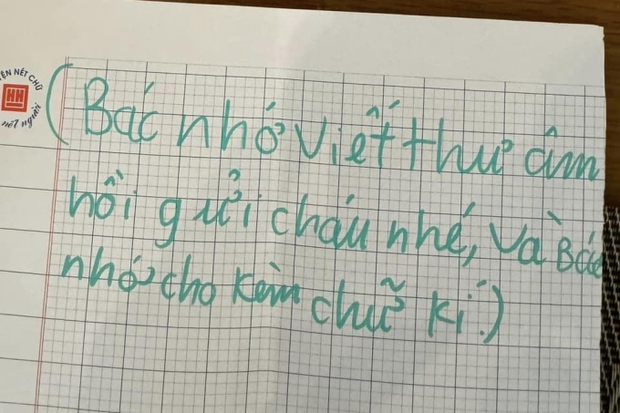 NÉT CHỮ
HH
nết người
(Bác nhớ viết thư âm
hồi gửi cháu nhé, và Bác
nhớ cho kèm chữ kí.)